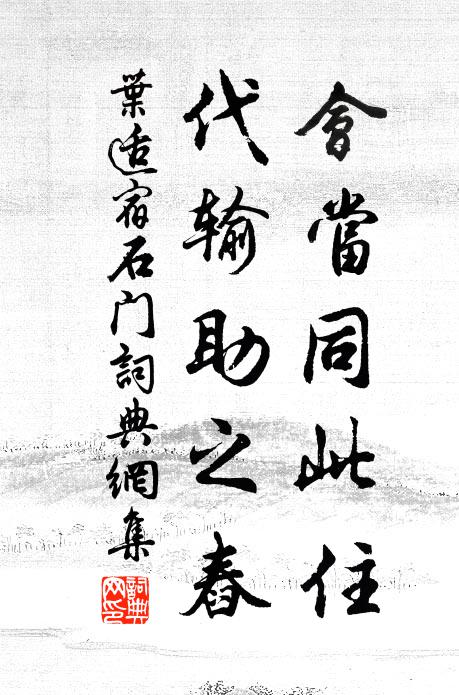 會當同此住
代输助之舂
葉适宿石门詞典網集
詞典网印